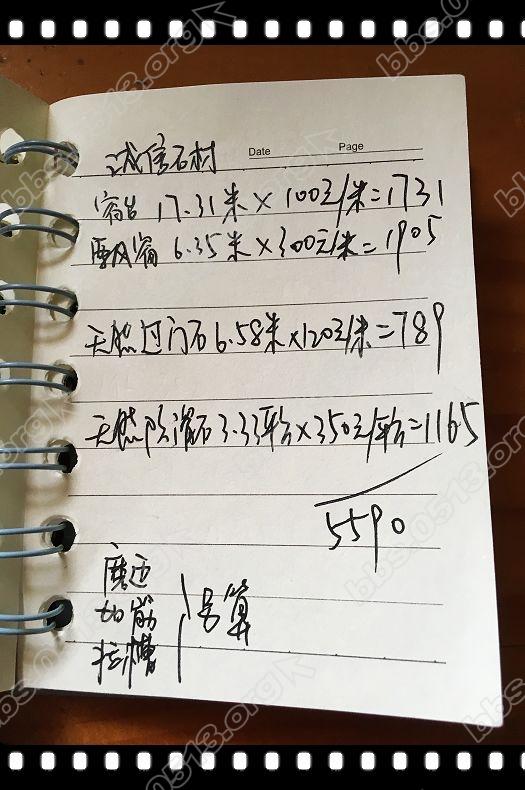 bbs.0513.org
诚信石材 Date Page
窗台 17.31米×100元/米=1731
飘窗 6.35米×300元/米=1905
天然过门石6.58米×120元/米=789
天然防滑石3.33平方×350元/平方=1165
5590
磨边
加筋 另算
拉槽